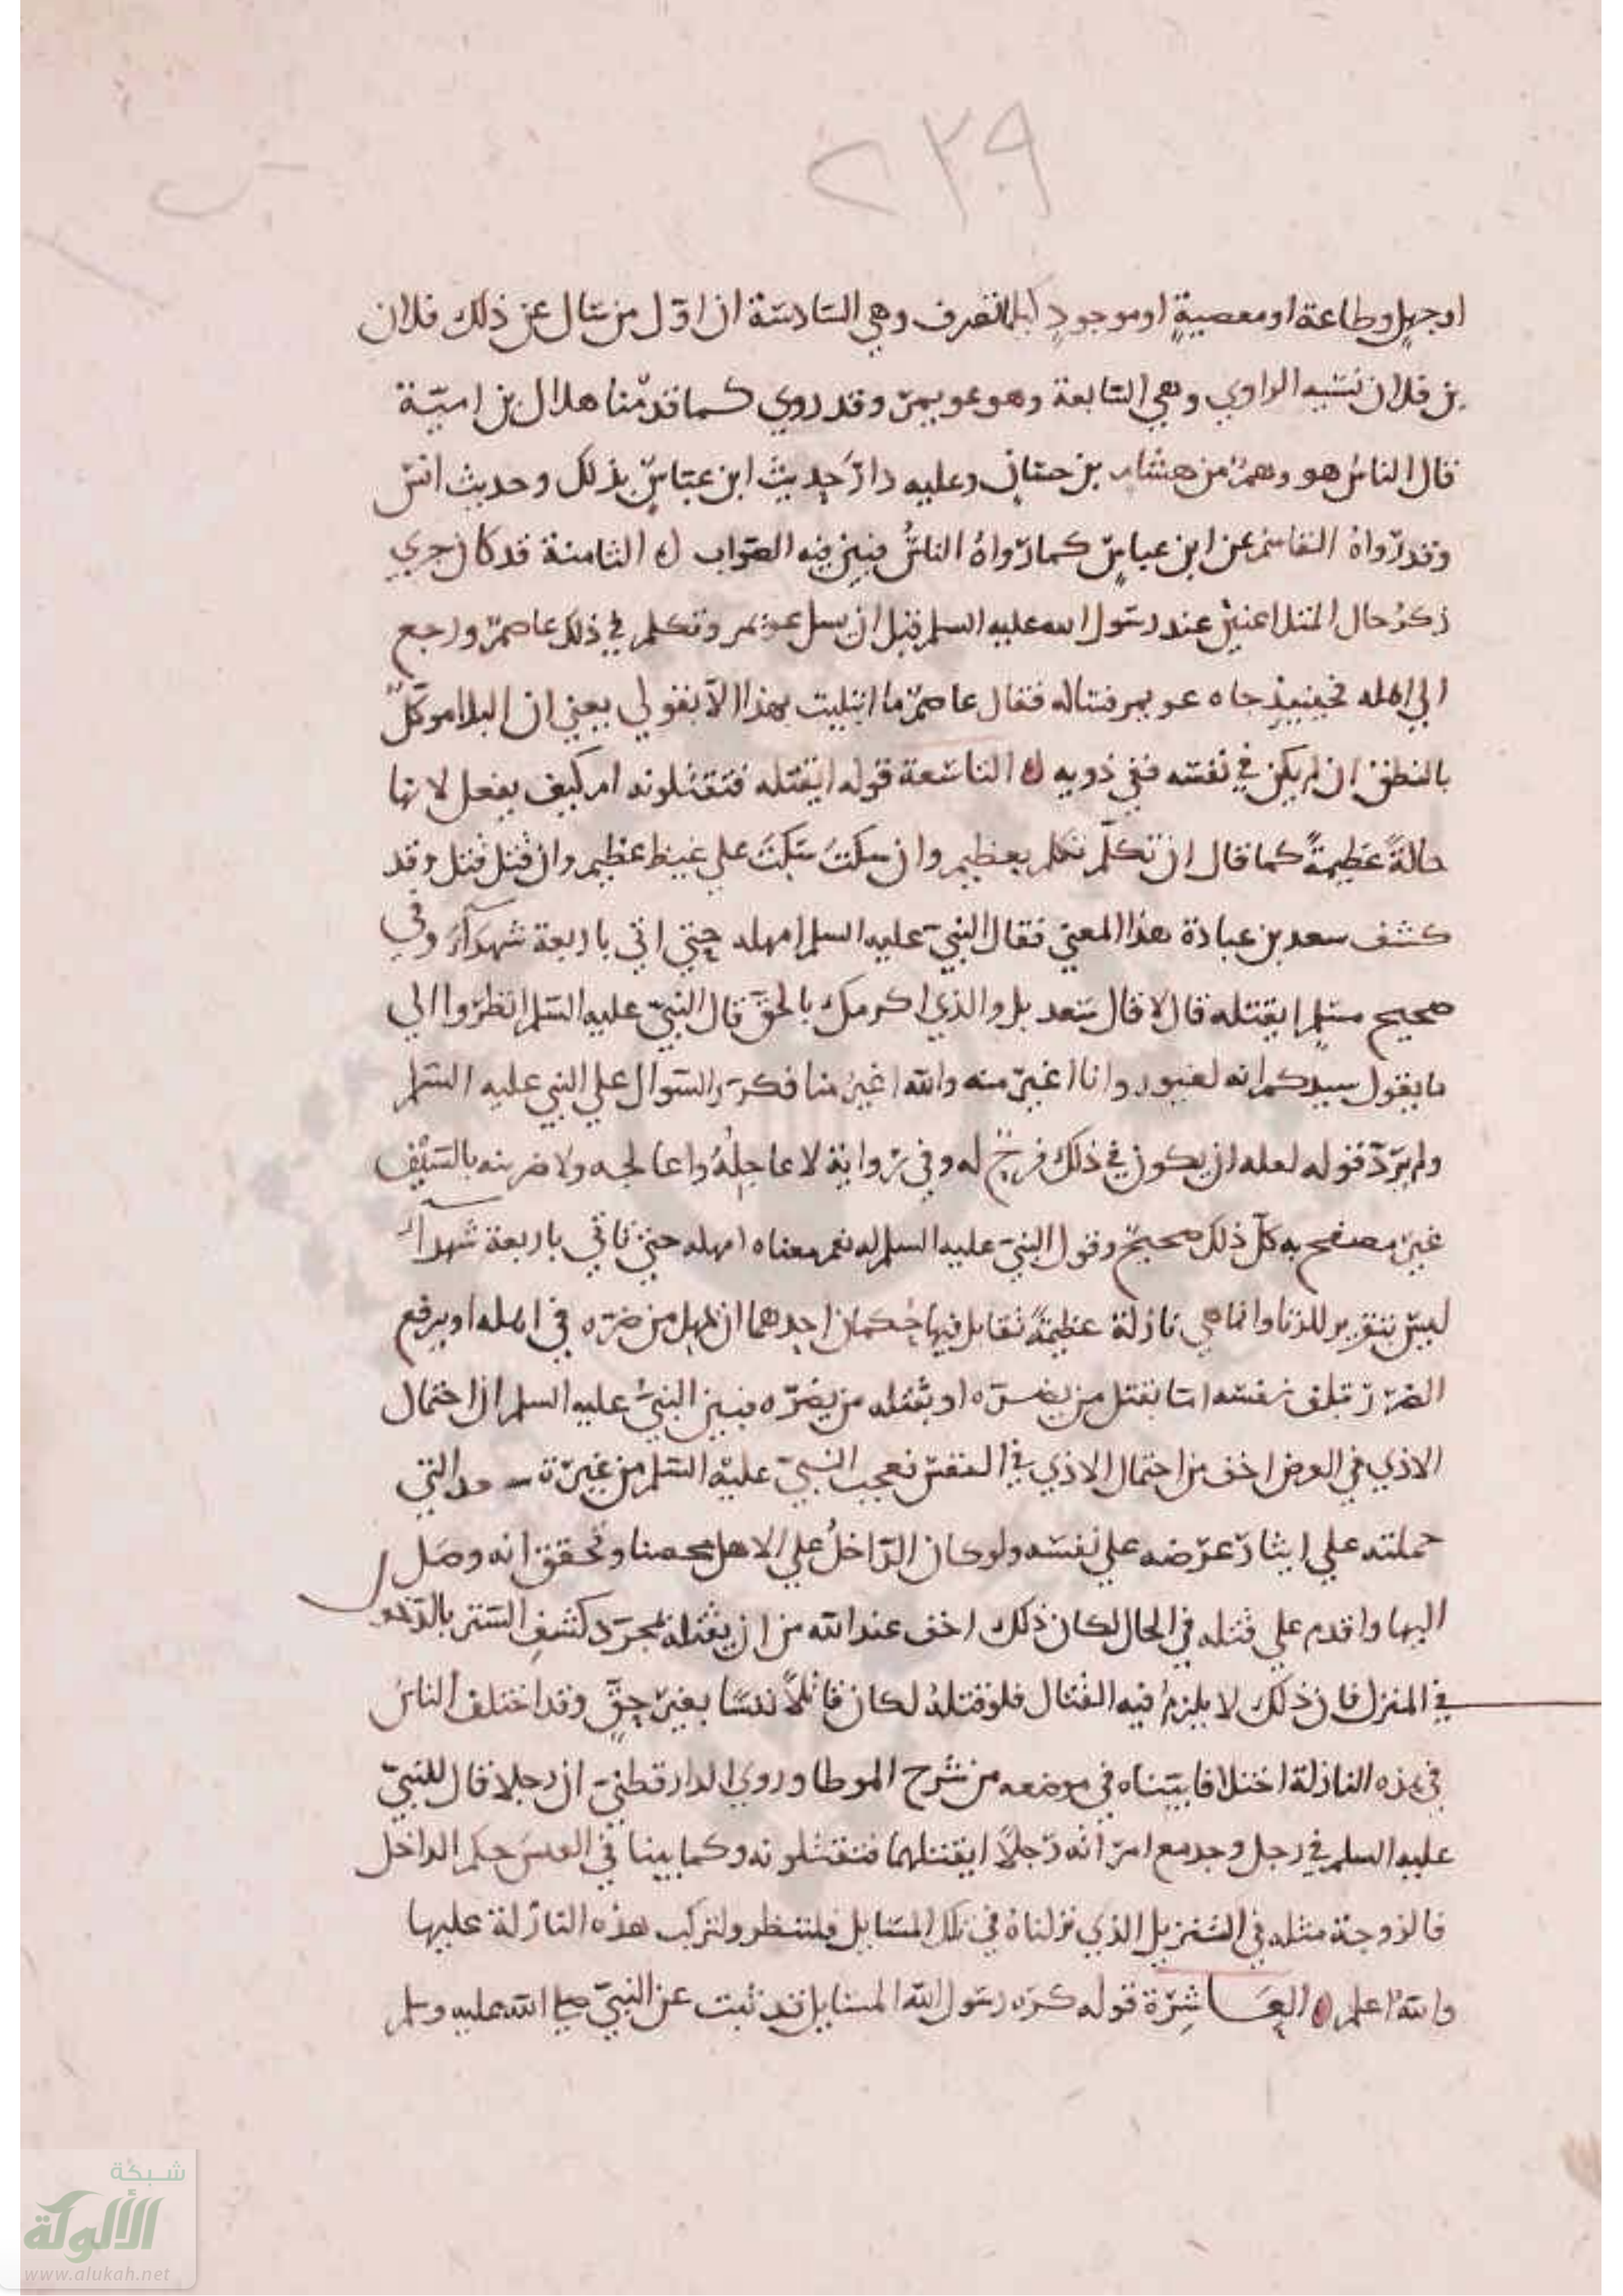 ٢٣٩
او جهل وطاعة او معصية او موجود تصرف وهي السادسة ان اول من سال عن ذلك فلان
بن فلان نسيه الراوي وهي السابعة وهو عويمر وقد روي كما قدمنا هلال بن امية
قال الناس هو وهم من هشام بن حسان وعليه دار حديث ابن عباس بذلك وحديث انس
وقد رواه القاسم عن ابن عباس كما رواه الناس فبين فيه الصواب ه الثامنة قد كان جري
ذكر حال المتلاعنين عند رسول الله عليه السلم قبل ان يسل عويمر وتكلم في ذلك عاصم ورجع
الي اهله فحينيذ جاه عويمر فساله فقال عاصم ما ابتليت بهذا الا بقولي يعني ان البلا موكل
بالنطق ان لم يكن في نفسه ففي ذويه ه التاسعة قوله ايقتله فتقتلونه ام كيف يفعل لانها
حالة عظيمة كما قال ان تكلم تكلم بعظيم وان سكت سكت علي غيظ عظيم وان قتل قتل وقد
كشف سعد بن عبادة هذا المعني فقال النبي عليه السلم امهله حتي اتي باربعة شهدآء وفي
صحيح مسلم ايقتله قال لا قال سعد بل والذي اكرمك بالحق قال النبي عليه السلم انظروا الي
ما يقول سيدكم انه لغيور وانا اغير منه والله اغير منا فكرر السوال علي النبي عليه السلم
ولم يرد قوله لعله ان يكون في ذلك فرج له وفي رواية لا عاجله واعالجه ولاضربنه بالسيف
غير مصفح به كل ذلك صحيح وقول النبي عليه السلم له نعم معناه امهله حتي تاتي باربعة شهدآء
ليس بتقرير للزنا وانما هي نازلة عظيمة تقابل فيها حكمان احدهما ان يمهل من ضره في اهله او يرفع
الضرر بتلف نفسه اما بقتل من يضره او بقتله من يضره فبين النبي عليه السلم ان احتمال
الاذي في العرض اخف من احتمال الاذي في النفس فعجب النبي عليه السلم من غيرة سعد التي
حملته علي ايثار عرضه علي نفسه ولو كان الداخل علي الاهل محصنا وتحقق انه وصل
اليها واقدم علي قتله في الحال لكان ذلك اخف عند الله من ان يقتله بمجرد كشف الستر بالدخول
في المنزل فان ذلك لا يلزم فيه القتال فلو قتله لكان قاتلا نفسا بغير حق وقد اختلف الناس
في هذه النازلة اختلافا بيناه في موضعه من شرح الموطا وروي الدارقطني ان رجلا قال للنبي
عليه السلم في رجل وجد مع امراته رجلا ايقتلهما فتقتلونه وكما بينا في حكم الداخل
فالزوجة مثله في التنزيل الذي نزلناه في تلك المسايل فلتنظر ولتركب هذه النازلة عليها
والله اعلم ه العاشرة قوله كره رسول الله المسايل قد ثبت عن النبي صلي الله عليه وسلم
شبكة
الألوكة
www.alukah.net